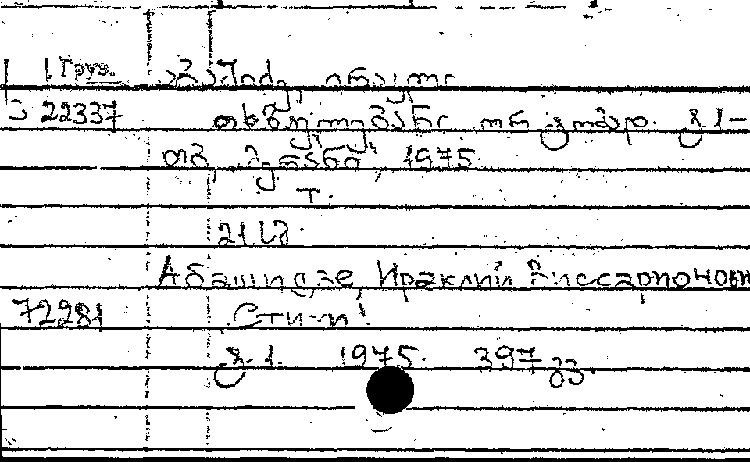 1 Груз. აბაშიძე, ირაკლი
22337 თხზულებანი ორ ტომად. ტ 1–
თბ, მერანი, 1975
т.
21 სმ.
Абашидзе, Ираклий Виссарионович
72281 Стихи!
ტ. 1. 1975. 397 გვ.